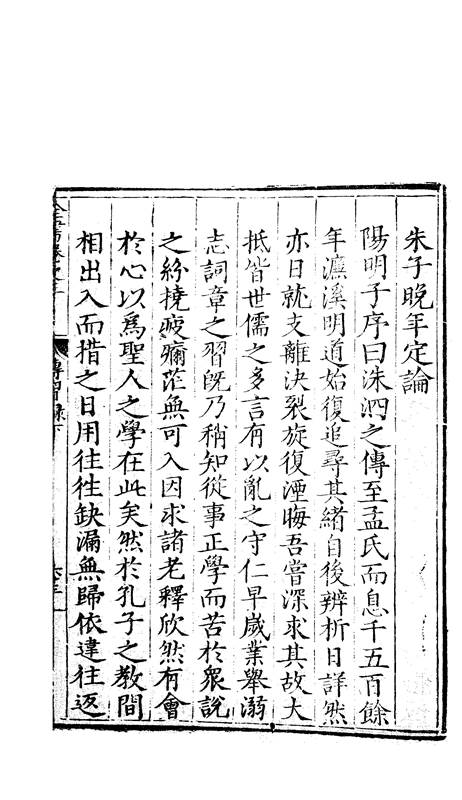 朱子晚年定論
陽明子序曰洙泗之傳至孟氏而息千五百餘
年濂溪明道始復追尋其緒自後辨析日詳然
亦日就支離決裂旋復湮晦吾嘗深求其故大
抵皆世儒之多言有以亂之守仁早歲業舉溺
志詞章之習既乃稍知從事正學而苦於衆說
之紛撓疲薾茫無可入因求諸老釋欣然有會
於心以爲聖人之學在此矣然於孔子之教間
相出入而措之日用往徃缺漏無歸依違往返
傳習錄下